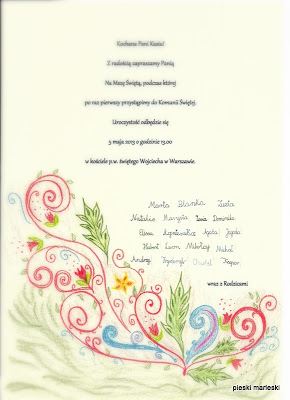 Kochana Pani Kasiu!
Z radością zapraszamy Panią
Na Mszę Świętą, podczas której
po raz pierwszy przystąpimy do Komunii Świętej.
Uroczystość odbędzie się
5 maja 2013 o godzinie 13.00
w kościele p.w. świętego Wojciecha w Warszawie.
Marta Blanka Zuzia
Natalia Marysia Iwa Dominika
Agnieszka Agata Jagoda
Hubert Leon Mikołaj
Andrzej Kacper
wraz z Rodzicami
pieski marleski